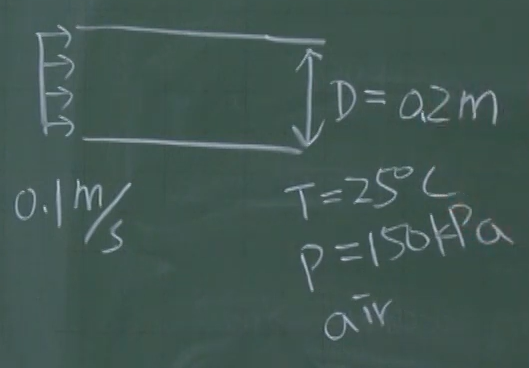 D = 0.2m
0.1 m/s
T = 25°C
P = 150kPa
air